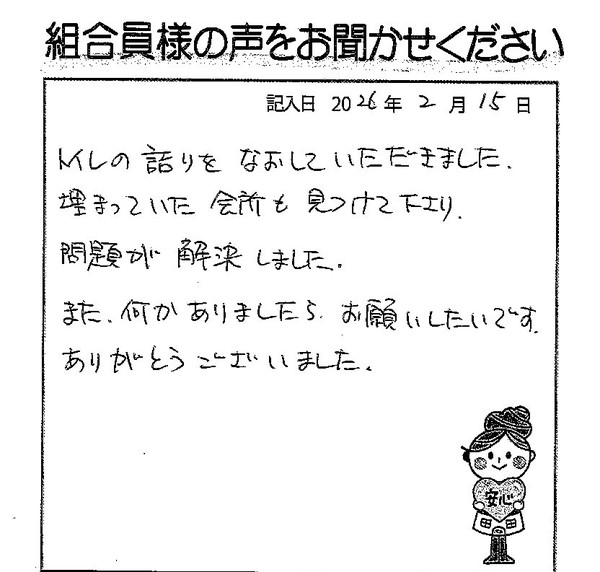 組合員様の声をお聞かせください
記入日 2026年 2月 15日
トイレの詰りを なおしていただきました.
埋まっていた 会所も 見つけて下さり.
問題が 解決しました.
また、何かありましたら お願いしたいです.
ありがとうございました.
安心